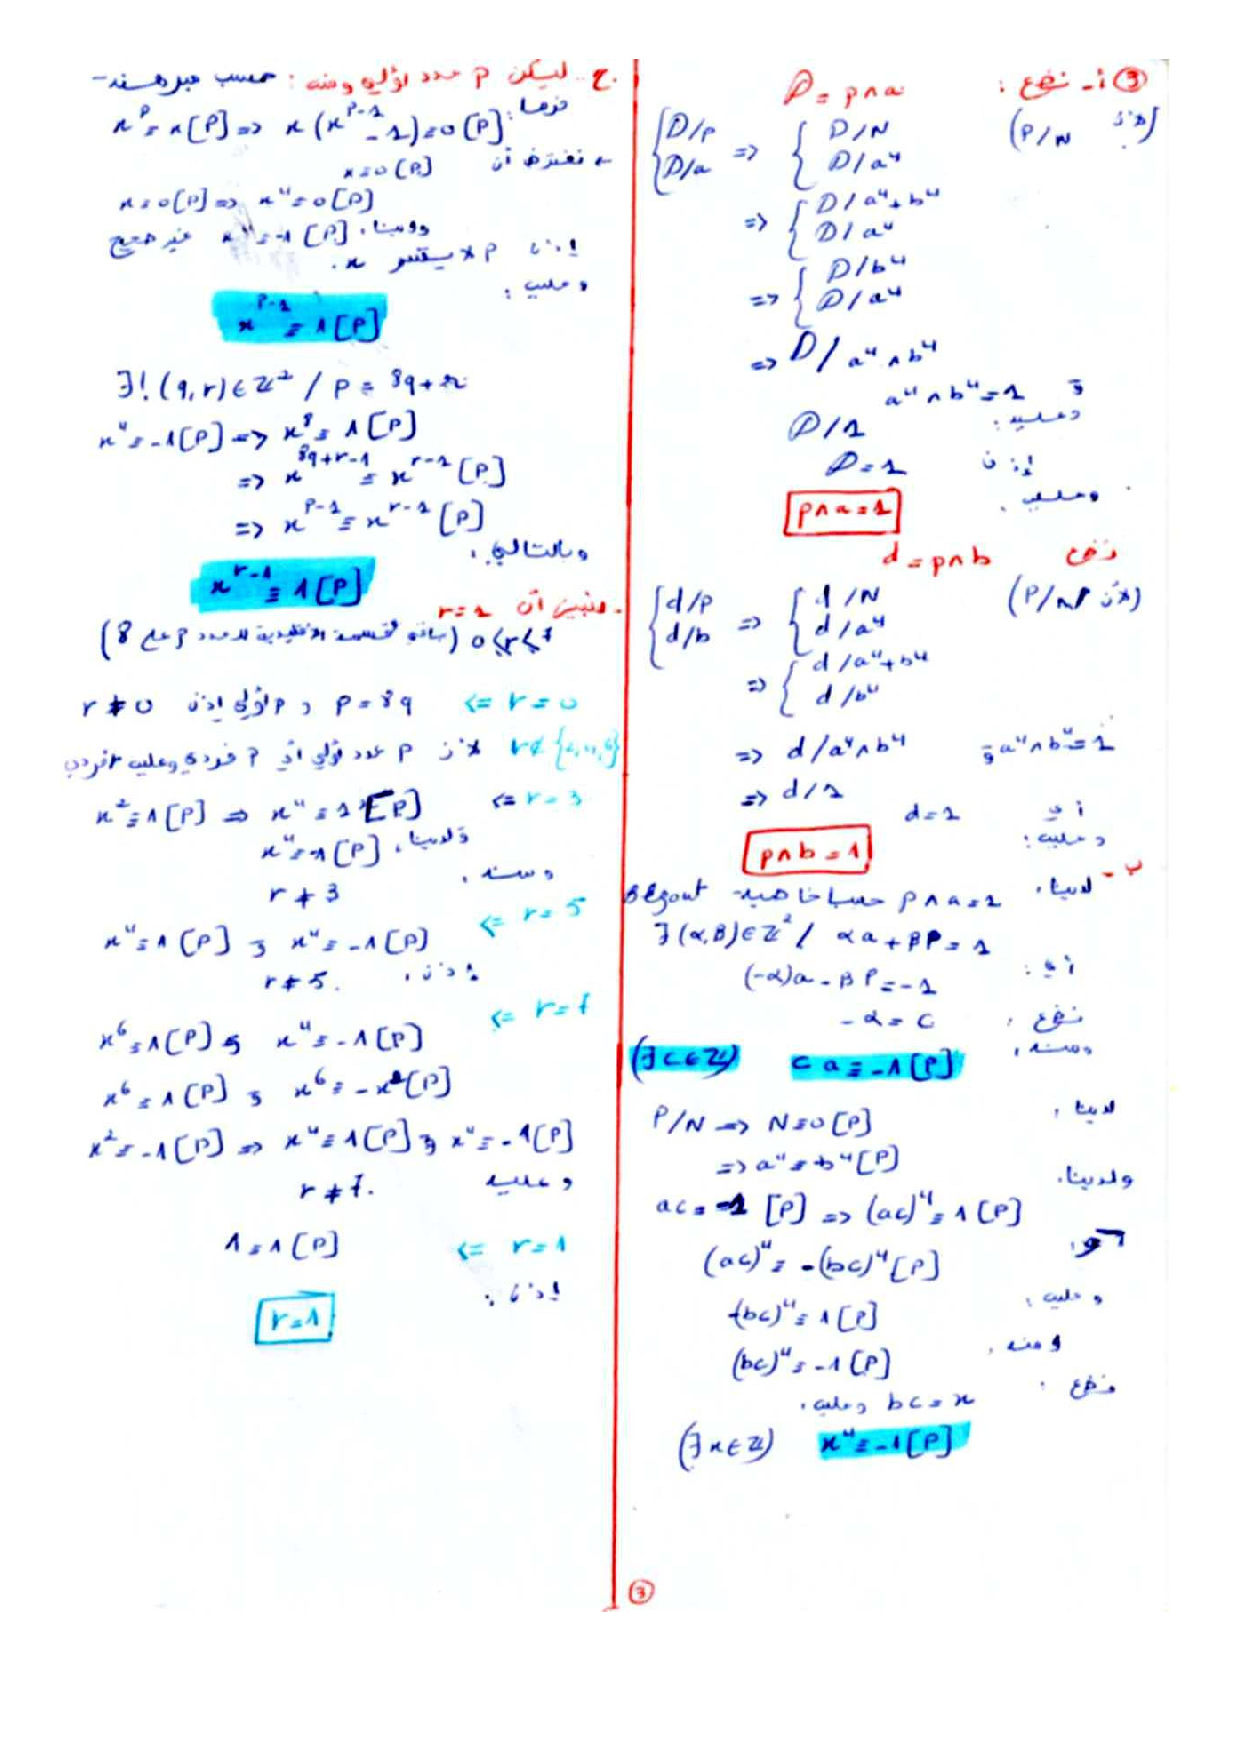 ③ أ- نضع : D = p∧a
{D/p D/a => {D/N D/a⁴ (لأن P/N)
=> {D/a⁴+b⁴ D/a⁴
=> {D/b⁴ D/a⁴
=> D/a⁴∧b⁴
و a⁴∧b⁴=1
وعليه: D/1
إذن D=1
وعليه: p∧a=1
نضع d = p∧b
{d/p d/b => {d/N d/b⁴ (لأن P/N)
=> {d/a⁴+b⁴ d/b⁴
=> d/a⁴∧b⁴ و a⁴∧b⁴=1
=> d/1
أي d=1
وعليه: p∧b=1
ب- لدينا: p∧a=1 حسب Bezout
∃(α,β)∈ℤ² / αa+βP=1
أي: (-α)a-βP=-1
نضع: -α=c
ومنه: ca≡-1[P] (∃c∈ℤ)
لدينا: P/N => N≡0[P]
=> a⁴≡-b⁴[P]
ولدينا: ac≡-1[P] => (ac)⁴≡1[P]
(ac)⁴≡-(bc)⁴[P]
وعليه: -(bc)⁴≡1[P]
ومنه: (bc)⁴≡-1[P]
نضع: bc=x وعليه:
(∃x∈ℤ) x⁴≡-1[P]
ج- ليكن p عدد أولي ومنه: حسب مبرهنة
فرما: x^p≡x[P] => x(x^(p-1)-1)≡0[P]
نفترض أن x≡0[P]
x≡0[P] => x⁴≡0[P]
ولدينا: x⁴≡-1[P] غير صحيح
إذن p لا يقسم x.
وعليه:
x^(p-1)≡1[P]
∃!(q,r)∈ℤ² / p=8q+r
x⁴≡-1[P] => x⁸≡1[P]
=> x^(8q+r-1)≡x^(r-1)[P]
=> x^(p-1)≡x^(r-1)[P]
وبالتالي:
x^(r-1)≡1[P]
- لنبين أن r=1
0≤r≤7 (باقي القسمة الاقليدية للعدد p على 8)
r=0 => p=8q و p أولي إذن r≠0
r∉{2,4,6} لأن p عدد أولي أي p فردي وعليه r فردي
r=3 => x²≡1[P] => x⁴≡1[P]
ولدينا: x⁴≡-1[P]
ومنه: r≠3
r=5 =>
x⁴≡1[P] و x⁴≡-1[P]
إذن: r≠5.
r=7 =>
x⁶≡1[P] و x⁴≡-1[P]
x⁶≡1[P] و x⁶≡-x²[P]
x²≡-1[P] => x⁴≡1[P] و x⁴≡-1[P]
وعليه r≠7.
r=1 => 1≡1[P]
إذن:
r=1
③